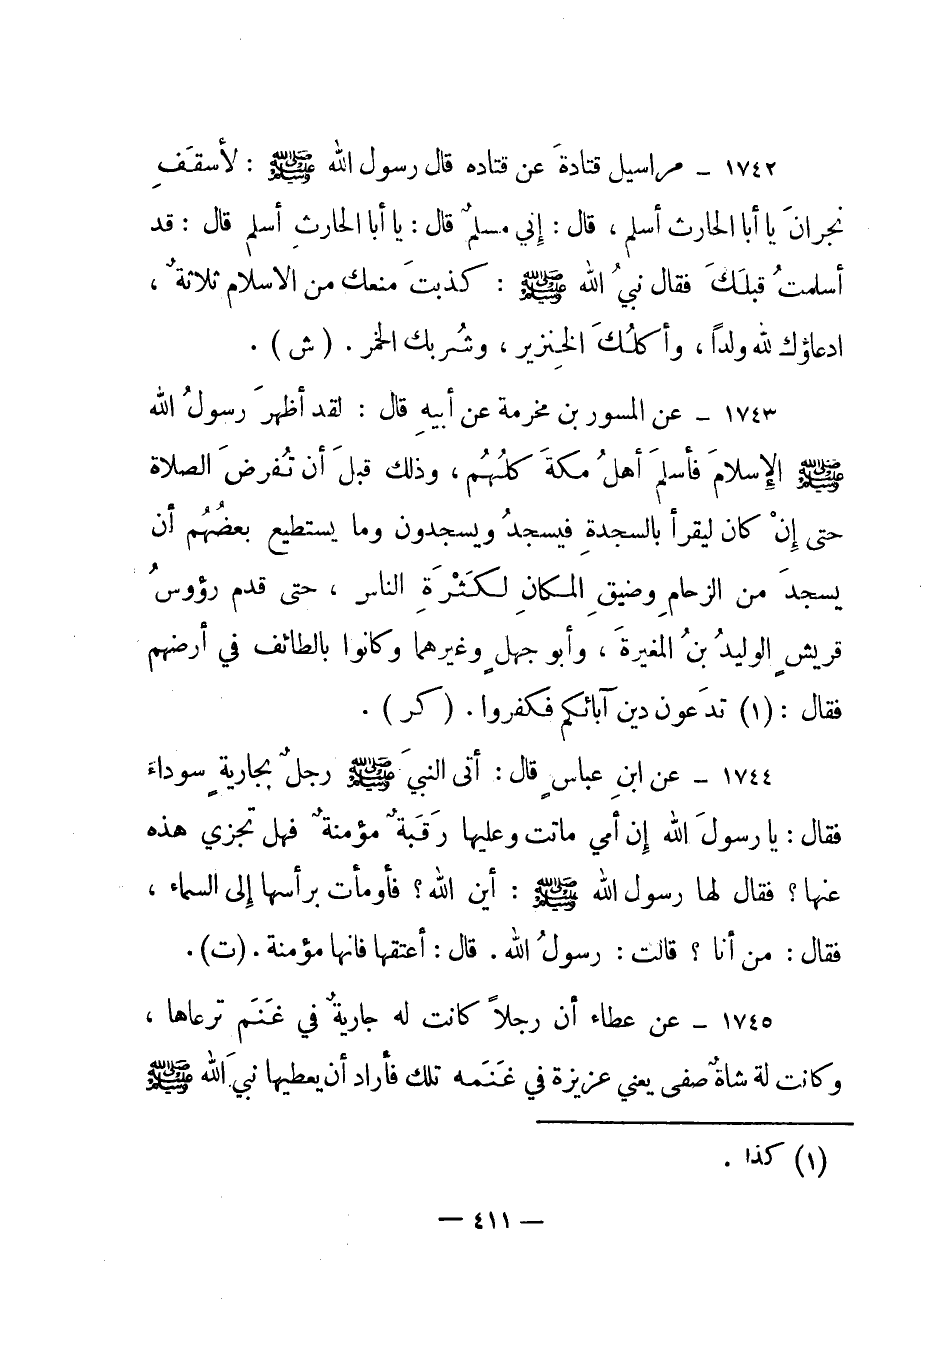 ١٧٤٢ ـ مراسيل قتادةَ عن قتاده قال رسول الله ﷺ : لأسقفِ
نجرانَ يا أبا الحارث أسلم ، قال : إني مسلمٌ قال : يا أبا الحارثِ أسلم قال : قد
أسلمتُ قبلَكَ فقال نبيُ الله ﷺ : كذبتَ منعك من الاسلام ثلاثةٌ ،
ادعاؤك لله ولداً ، وأكلُكَ الخِنزير ، وشُربك الخمر . ( ش ) .
١٧٤٣ ـ عن المسور بن مخرمة عن أبيهِ قال : لقد أظهرَ رسولُ الله
ﷺ الإِسلامَ فأسلمَ أهلُ مكةَ كلُهُم ، وذلك قبلَ أن تُفرضَ الصلاة
حتى إِنْ كان ليقرأ بالسجدةِ فيسجدُ ويسجدون وما يستطيع بعضُهُم أن
يسجدَ من الزحامِ وضيقِ المكانِ لكَثْرَةِ الناس ، حتى قدم رؤوسُ
قريشٍ الوليدُ بنُ المغيرةَ ، وأبو جهلٍ وغيرهما وكانوا بالطائف في أرضهم
فقال : (١) تدَعون دين آبائكم فكفروا . ( كر ) .
١٧٤٤ ـ عن ابنِ عباسٍ قال : أتى النبيَ ﷺ رجلٌ بجاريةٍ سوداءَ
فقال : يا رسولَ الله إن أمي ماتت وعليها رَقَبةٌ مؤمنةٌ فهل تجزي هذه
عنها ؟ فقال لها رسول الله ﷺ : أين الله ؟ فأومأت برأسها إلى السماء ،
فقال : من أنا ؟ قالت : رسولُ الله . قال : أعتقها فانها مؤمنة . (ت) .
١٧٤٥ ـ عن عطاء أن رجلاً كانت له جاريةٌ في غَنَم ترعاها ،
وكانت لة شاةٌ صفى يعني عزيزة في غَنَمه تلك فأراد أن يعطيها نبيَ الله ﷺ
(١) كذا .
— ٤١١ —